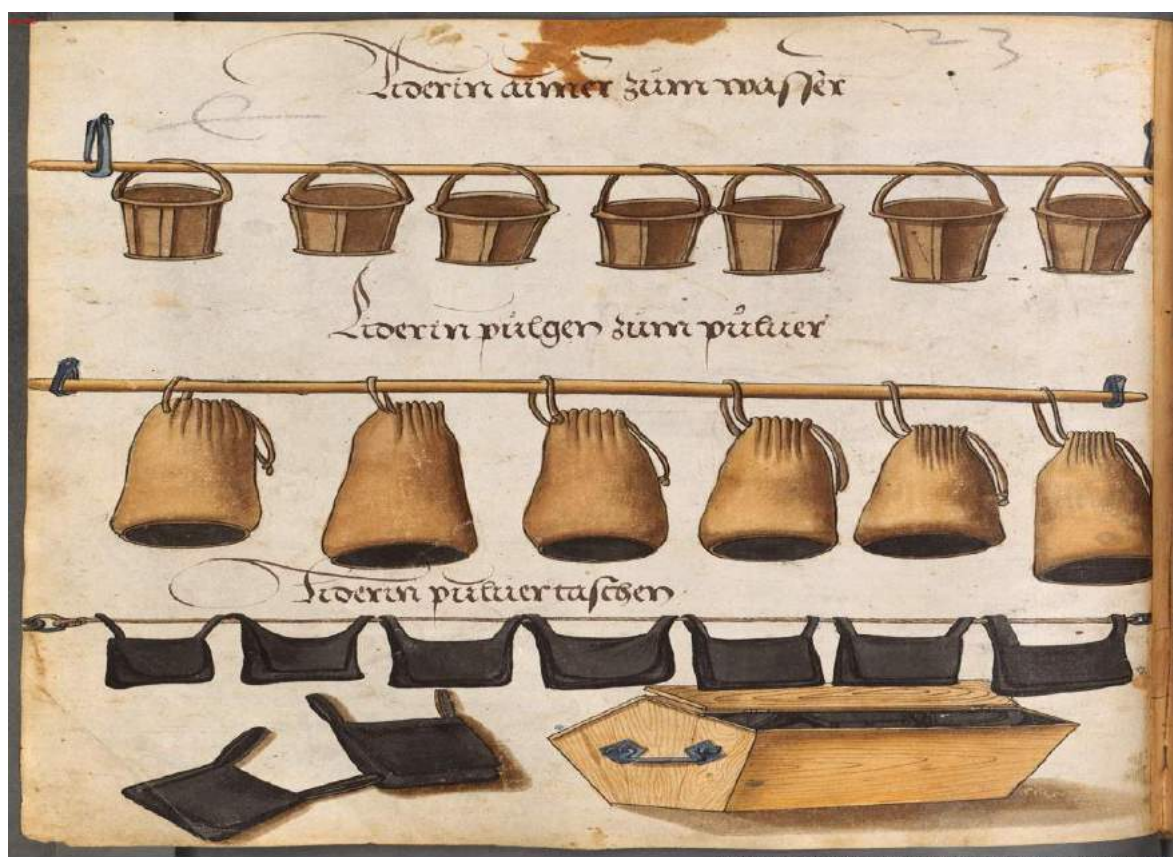 23
Liderin aimer zum wasser
Liderin pulgen zum puluer
Liderin puluer taschen